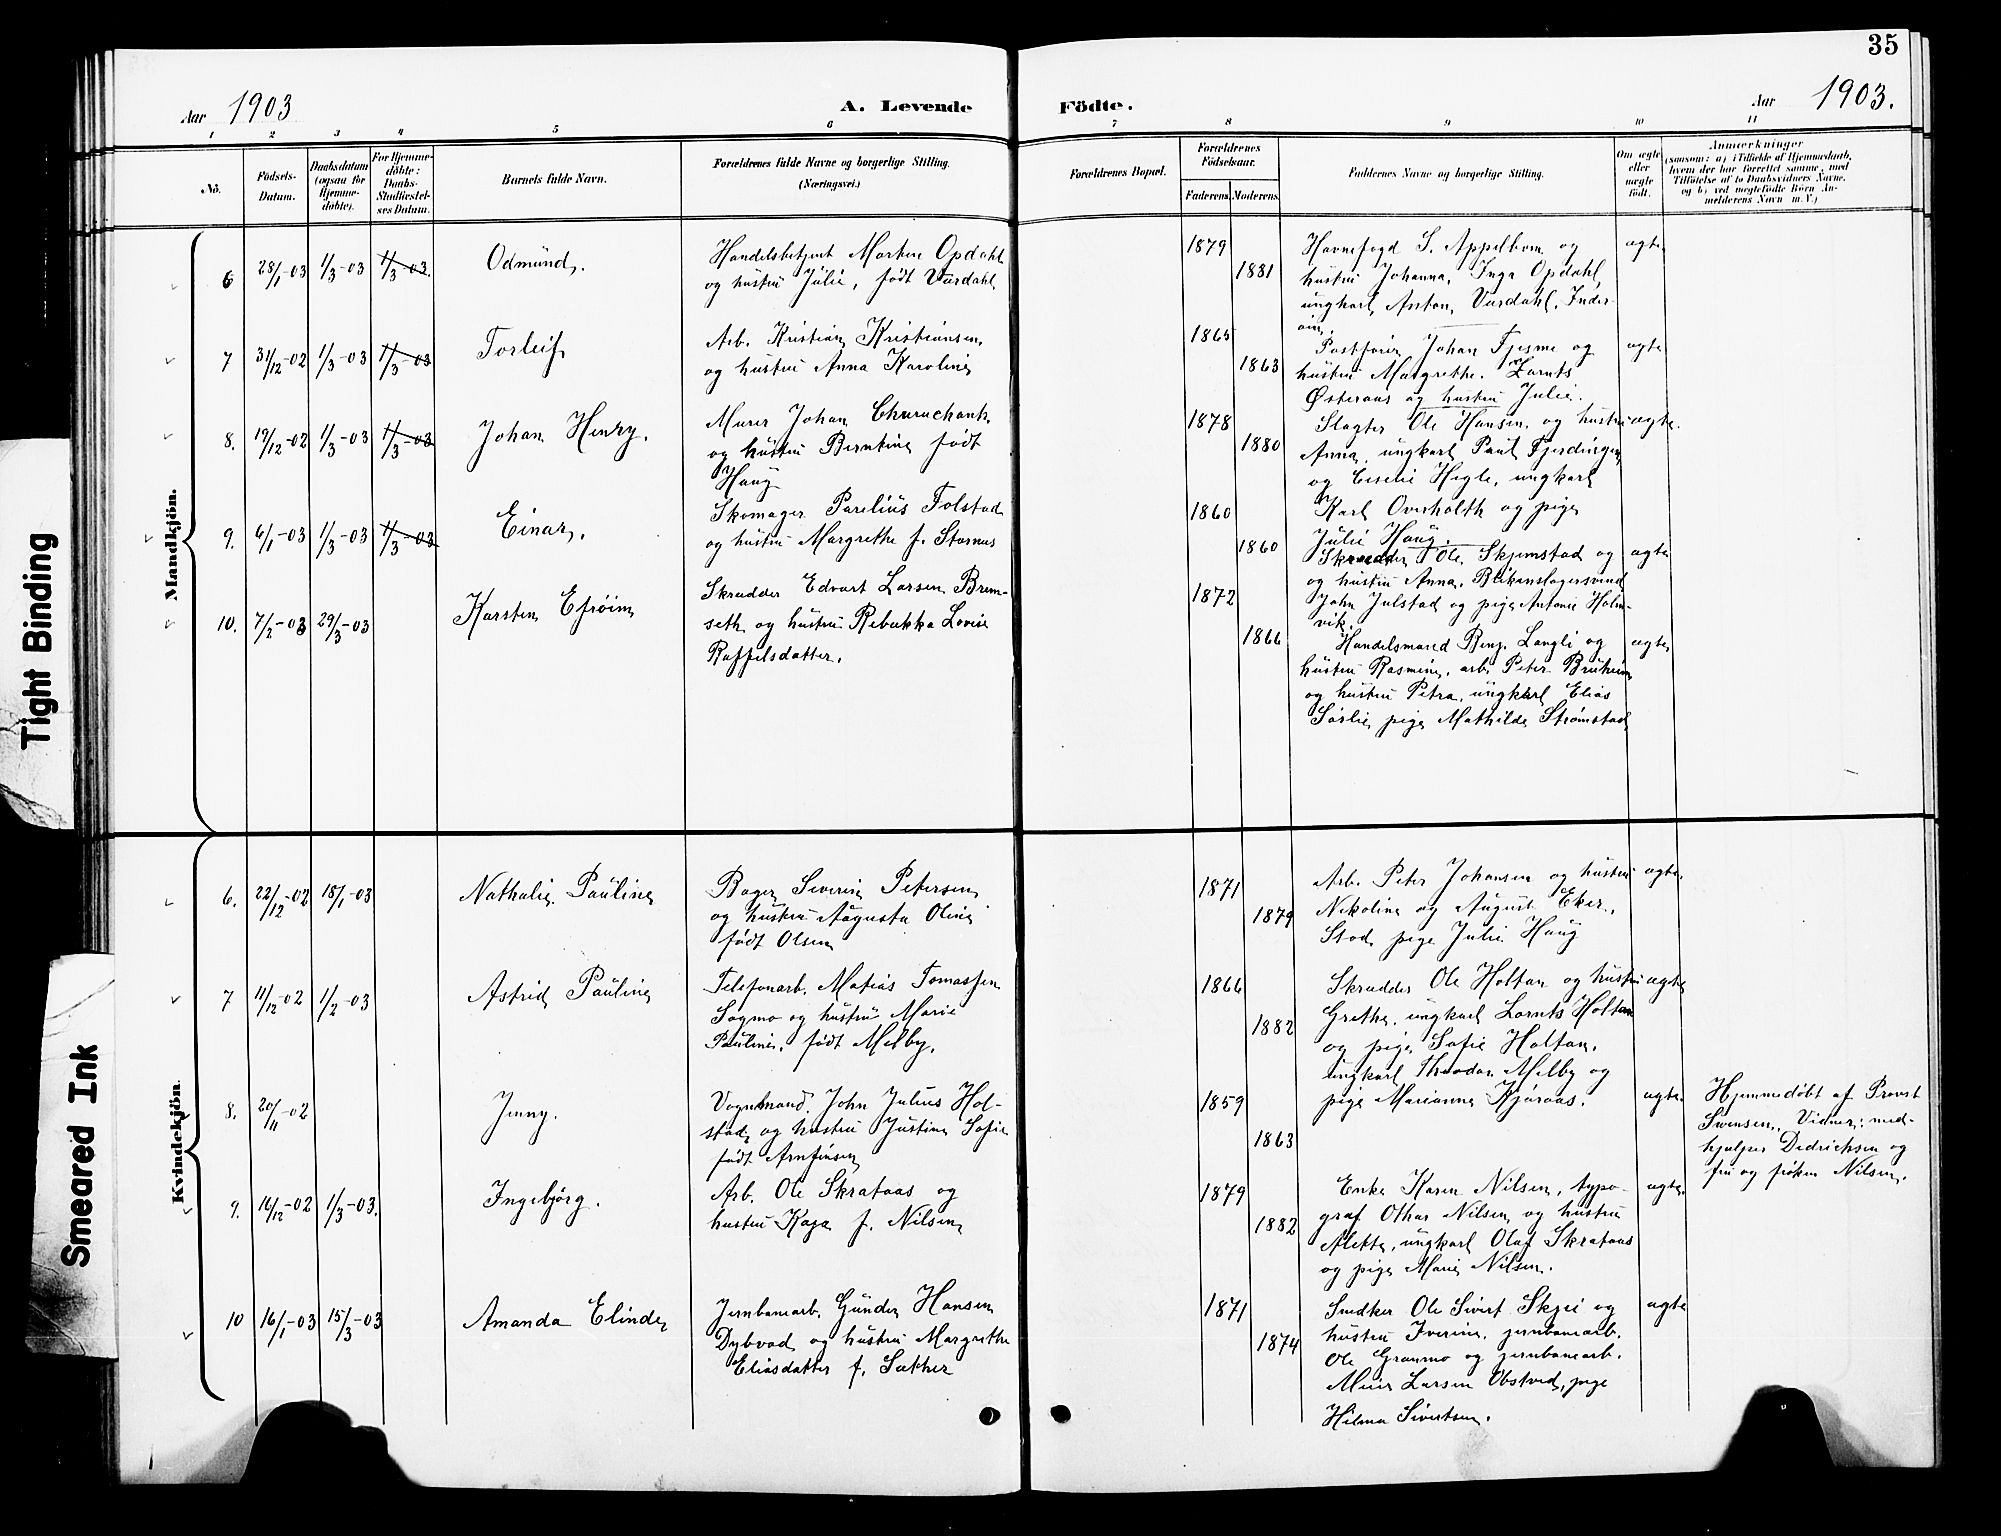 35
Aar 1903
A. Levende
Födte.
Aar 1903.
1 2 3 4 5 6 7 8 9 10 11
Nö.
Födsels-
Datum.
Daabsdatum
(ogsaa for
Hjemme-
døbte).
For Hjemme-
døbte:
Daabs-
Stadfæstel-
ses Datum.
Barnets fulde Navn.
Forældrenes fulde Navne og borgerlige Stilling.
(Næringsvei.)
Forældrenes Bopæl.
Forældrenes
Födselsaar.
Faderens. Moderens.
Faddernes Navne og borgerlige Stilling.
Om ægte
eller
uægte
født.
Anmærkninger
(saasom: a) i Tilfælde af Hjemmedaab,
hvem der har forrettet samme, med
Tilföielse af to Daabsvidners Navne,
og b) ved uægtefödte Börn An-
melderens Navn m. V.)
Mandkjön.
6 28/1-03 1/3-03 1/3-03. Odmund.
Handelsbetjent Morten Opdahl
og hustru Julie, født Vardahl
1879
1881
Havnefogd S. Appelbom og
hustru Johanna, Inga Opdahl,
ungkarl Anton Vardahl, Inder-
øin.
ægte
7 31/12-02 1/3-03 1/3-03 Torleif
Arb. Kristian Kristiansen
og hustru Anna Karoline
1865
1863
Postfører Johan Fjesme og
hustru Margrethe. Lornts
Østeraas og hustru Julie.
ægte
8. 19/12-02 1/3-03 1/3-03 Johan Henry.
Murer Johan
og hustru Berntine født
Haug
1878
1880
Slagter Ole Hansen og hustru
Anna, ungkarl Paul Fjerdingen
og Hegle, ungkarl
Karl Overholth og pige
Julie Haug.
ægte.
9. 6/1-03 1/3-03 1/3-03 Einar.
Skomager Parelius Tolstad
og hustru Margrethe f. Stornus
1860
1860
Skrædder Ole Skjemstad og
og hustru Anna. Blikenslagersvend
John Julstad og pige Antonie Holm-
vik.
ægte
10. 7/2-03 29/3-03 Karsten Efrøim
Skrædder Edvart Larsen Brem-
seth og hustru Rebekka Lovise
Raffelsdatter.
1872
1866
Handelsmand Benj. Langli og
hustru Rasmine, arb. Peter Bruheim
og hustru Petra, ungkarl Elias
Sørlie, pige Mathilde Strømstad
ægte
Kvindekjön.
6. 22/12-02 18/1-03 Nathalie Pauline
Bager Severin Petersen
og hustru Augusta Oline
født Olsen
1871
1879
Arb. Peter Johansen og hustru
Nikoline og August Eker,
Stod, pige Julie Haug
ægte.
7 11/12-02 1/2-03 Astrid Pauline
Telefonarb. Matias Tomassen
Sagmo og hustru Marie
Pauline, født Melby.
1866
1882
Skrædder Ole Holtan og hustru
Grethe, ungkarl Lornts Holtan
og pige Sofie Holtan,
ungkarl Theodor Melby og
pige Marianne Kjøraas.
ægte
8. 20/11-02 Jenny.
Vognmand John Julius Hol-
stad og hustru Justine Sofie
født Arnfinsen
1859
1863
ægte.
Hjemmedøbt af Provst
Svensen, Vidner: med-
hjelper Dedrichsen og
fru og frøken Nilsen.
9. 16/12-02 1/3-03. Ingebjørg.
Arb. Ole Skrataas og
hustru Kaja f. Nilsen
1879
1882
Enke Karen Nilsen, typo-
graf Othar Nilsen og hustru
Alette, ungkarl Olaf Skrataas
og pige Marie Nilsen.
ægte.
10 16/1-03 15/3-03 Amanda Elinde
Jernbanearb. Gunder Hansen
Dybvad og hustru Margrethe
Eliasdatter f. Sæther
1871
1874
Snedker Ole Sivert Skjei og
hustru Iverine, jernbanearb.
Ole Granmo og jernbanearb.
Larsen Obstved, pige
Hilma Sivertsen.
ægte
Tight Binding
Smeared Ink